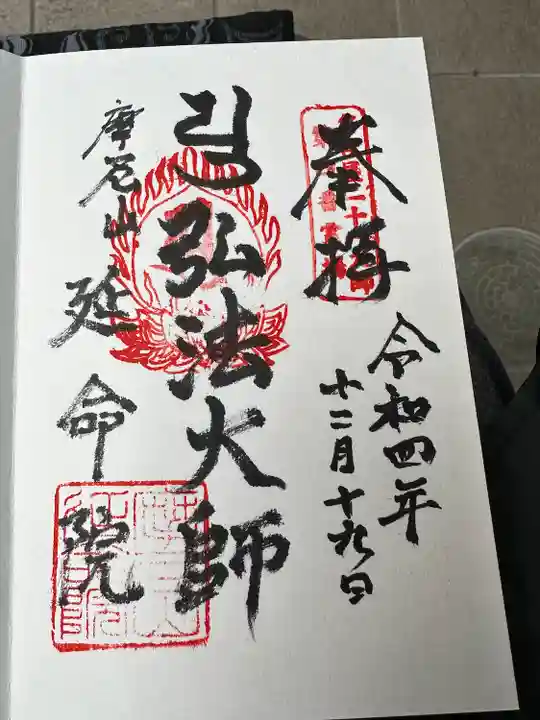 奉拝
令和四年
十二月十九日
弘法大師
摩尼山 延命院